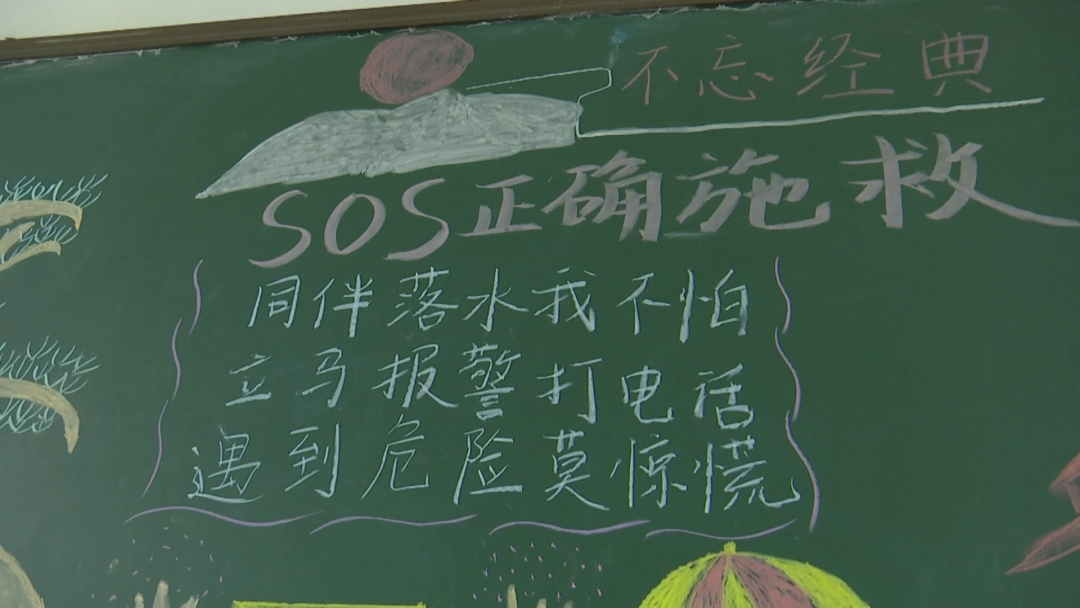 不忘经典
SOS正确施救
同伴落水我不怕
立马报警打电话
遇到危险莫惊慌